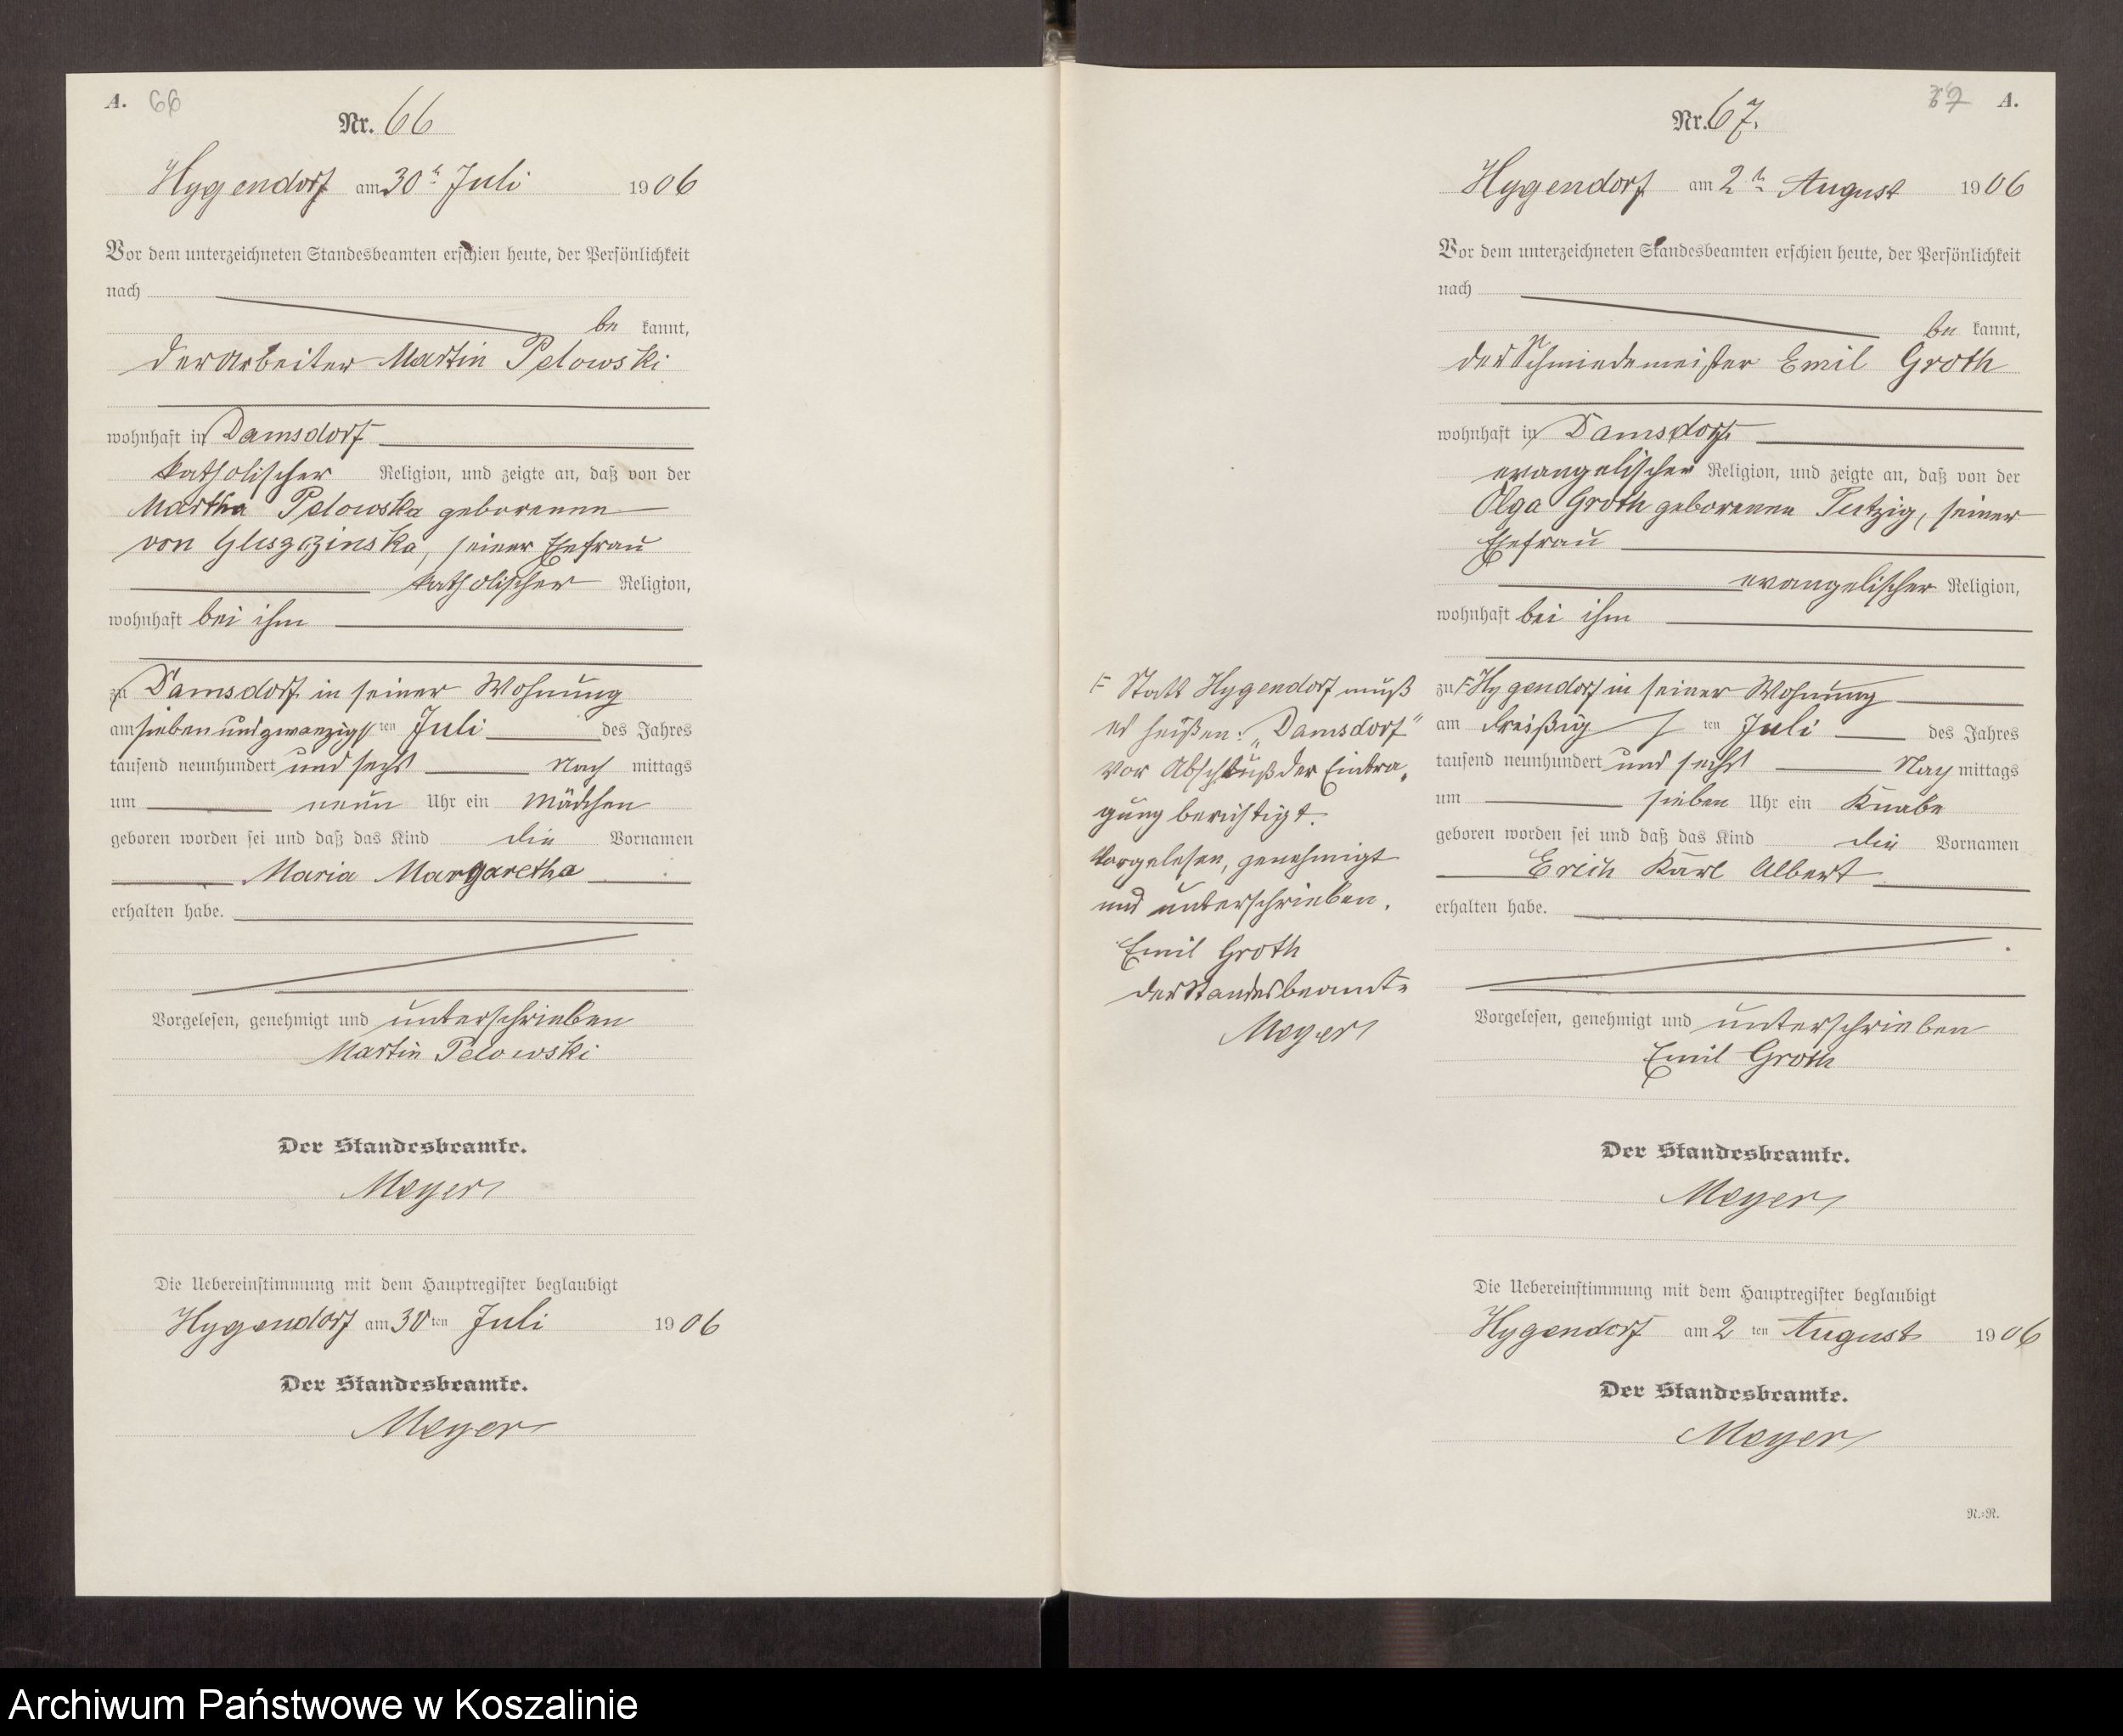 A. 66
Nr. 66
Hygendorf am 30t Juli 1906
Vor dem unterzeichneten Standesbeamten erschien heute, der Persönlichkeit
nach
be kannt,
der Arbeiter Martin Pelowski
wohnhaft in Damsdorf
katholischer Religion, und zeigte an, daß von der
Martha Pelowska geborenen
von Gliszczinska, seiner Ehefrau
katholischer Religion,
wohnhaft bei ihm
zu Damsdorf in seiner Wohnung
am sieben und zwanzigsten Juli des Jahres
tausend neunhundert und sechs Nach mittags
um neun Uhr ein Mädchen
geboren worden sei und daß das Kind die Vornamen
Maria Margaretha
erhalten habe.
Vorgelesen, genehmigt und unterschrieben
Martin Pelowski
Der Standesbeamte.
Meyer
Die Uebereinstimmung mit dem Hauptregister beglaubigt
Hygendorf am 30ten Juli 1906
Der Standesbeamte.
Meyer
67 A.
Nr. 67.
Hygendorf am 2t August 1906
Vor dem unterzeichneten Standesbeamten erschien heute, der Persönlichkeit
nach
be kannt,
der Schmiedemeister Emil Groth
wohnhaft in Damsdorf
evangelischer Religion, und zeigte an, daß von der
Olga Groth geborenen Putzig, seiner
Ehefrau
evangelischer Religion,
wohnhaft bei ihm
zu Hygendorf in seiner Wohnung
am dreißigsten Juli des Jahres
tausend neunhundert und sechs Nach mittags
um sieben Uhr ein Knabe
geboren worden sei und daß das Kind die Vornamen
Erich Karl Albert
erhalten habe.
Statt Hygendorf muß
es heißen: „Damsdorf"
Vor Abschluß der Eintra-
gung berichtigt.
Vorgelesen, genehmigt
und unterschrieben.
Emil Groth
Der Standesbeamte
Meyer
Vorgelesen, genehmigt und unterschrieben
Emil Groth
Der Standesbeamte.
Meyer
Die Uebereinstimmung mit dem Hauptregister beglaubigt
Hygendorf am 2 ten August 1906
Der Standesbeamte.
Meyer
N.-R.
Archiwum Państwowe w Koszalinie